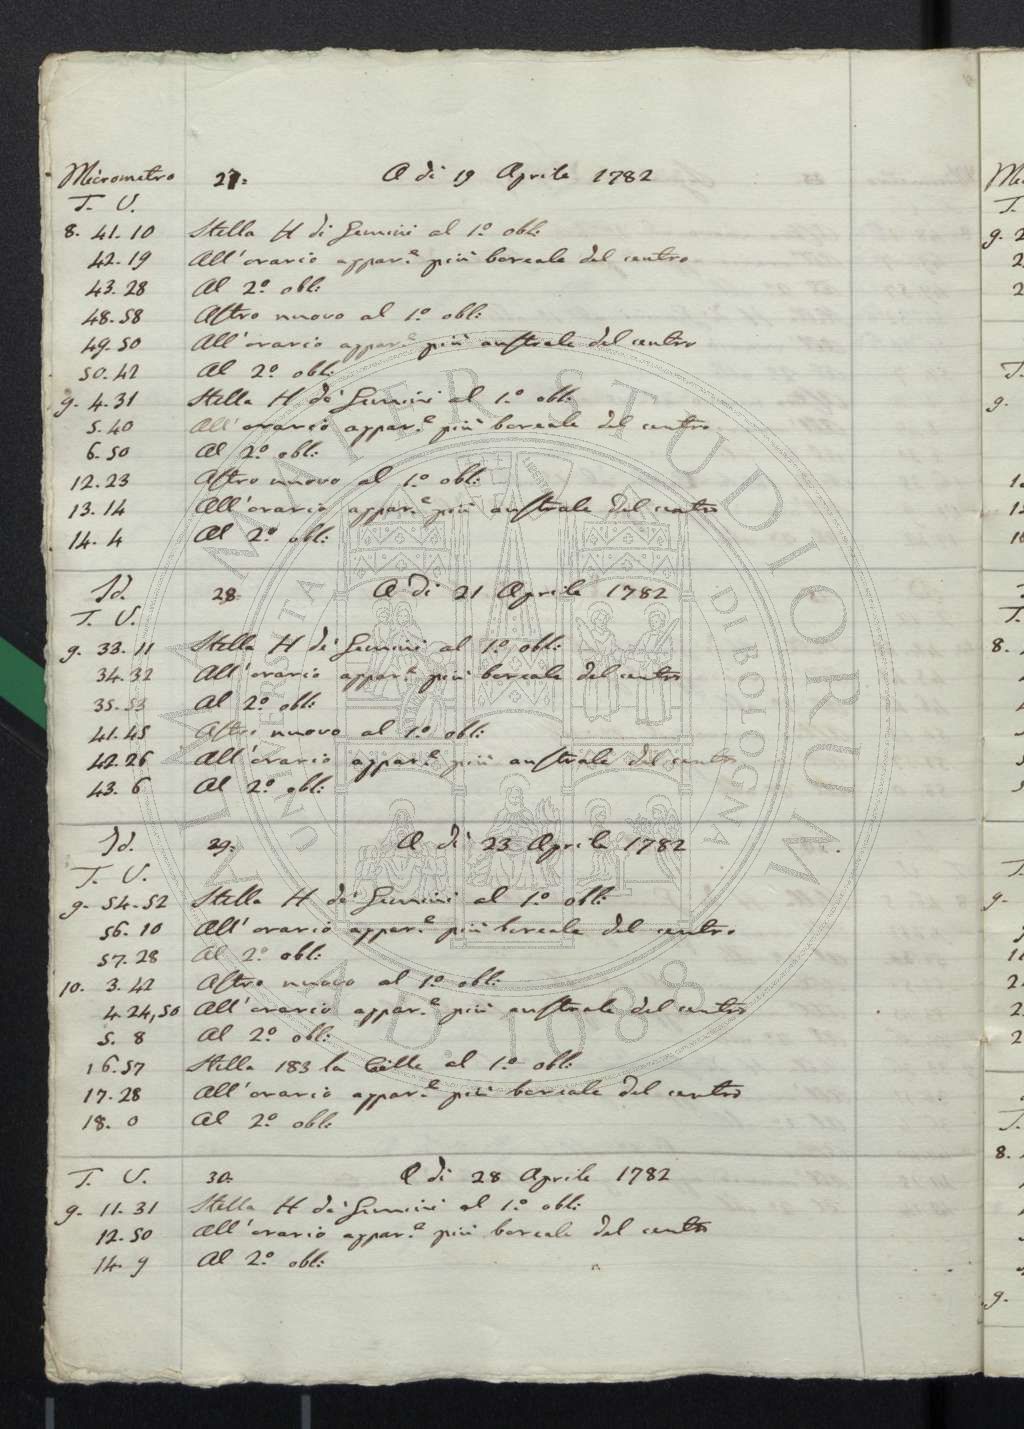 Micrometro 27. A di 19 Aprile 1782
T. V.
8. 41. 10 Stella H di Gemini al 1.º obl:
42. 19 All'orario appar.e più boreale del centro
43. 28 Al 2.º obl:
48. 58 Astro nuovo al 1.º obl:
49. 50 All'orario appar.e più australe del centro
50. 42 Al 2.º obl:
9. 4. 31 Stella H de' Gemini al 1.º obl:
5. 40 All'orario appar.e più boreale del centro
6. 50 Al 2.º obl:
12. 23 Astro nuovo al 1.º obl:
13. 14 All'orario appar.e più australe del centro
14. 4 Al 2.º obl:
Id. 28. A di 21 Aprile 1782
T. V.
9. 33. 11 Stella H de' Gemini al 1.º obl:
34. 32 All'orario appar.e più boreale del centro
35. 53 Al 2.º obl:
41. 45 Astro nuovo al 1.º obl:
42. 26 All'orario appar.e più australe del centro
43. 6 Al 2.º obl:
Id. 29. A di 23 Aprile 1782
T. V.
9. 54. 52 Stella H de' Gemini al 1.º obl:
56. 10 All'orario appar.e più boreale del centro
57. 28 Al 2.º obl:
10. 3. 42 Astro nuovo al 1.º obl:
4. 24,50 All'orario appar.e più australe del centro
5. 8 Al 2.º obl:
16. 57 Stella 183 la Cille al 1.º obl:
17. 28 All'orario appar.e più boreale del centro
18. 0 Al 2.º obl:
T. V. 30. A di 28 Aprile 1782
9. 11. 31 Stella H de' Gemini al 1.º obl:
12. 50 All'orario appar.e più boreale del centro
14. 9 Al 2.º obl:
ALMA MATER STUDIORUM
UNIVERSITA DI BOLOGNA
A.D. 1088